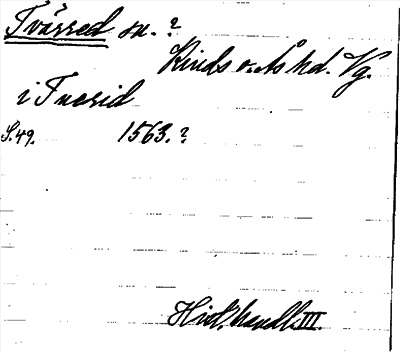 Tvärred sn.?
Kinds o. Ås hd. Vg.
i Tuerid
S. 49. 1563.?
Hist. handl. III.